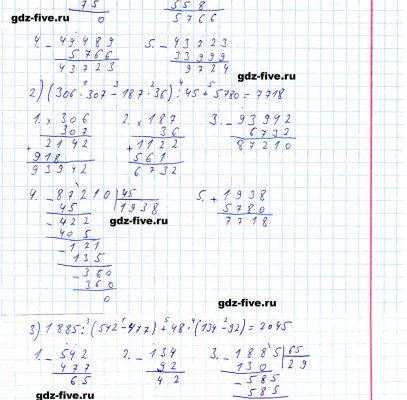 75
558
0
5766
gdz-five.ru
4. - 49489 5. - 43723
5766 33999
43723 9724
gdz-five.ru
2) (306 · 307 - 187 · 36) : 45 + 5780 = 7718
1. x 306 2. x 187 3. - 93942
307 36 6732
+ 2142 + 1122 87210
918 561
93942 6732
4. - 87210 | 45 5. + 1938
45 1938 5780
- 422 7718
405
gdz-five.ru
- 121
135
- 360
360
0
gdz-five.ru
3) 1885 : (542 - 477) + 48 · (134 - 92) = 2045
1. - 542 2. - 134 3. - 1885 | 65
477 92 130 29
65 42 - 585
585
gdz-five.ru